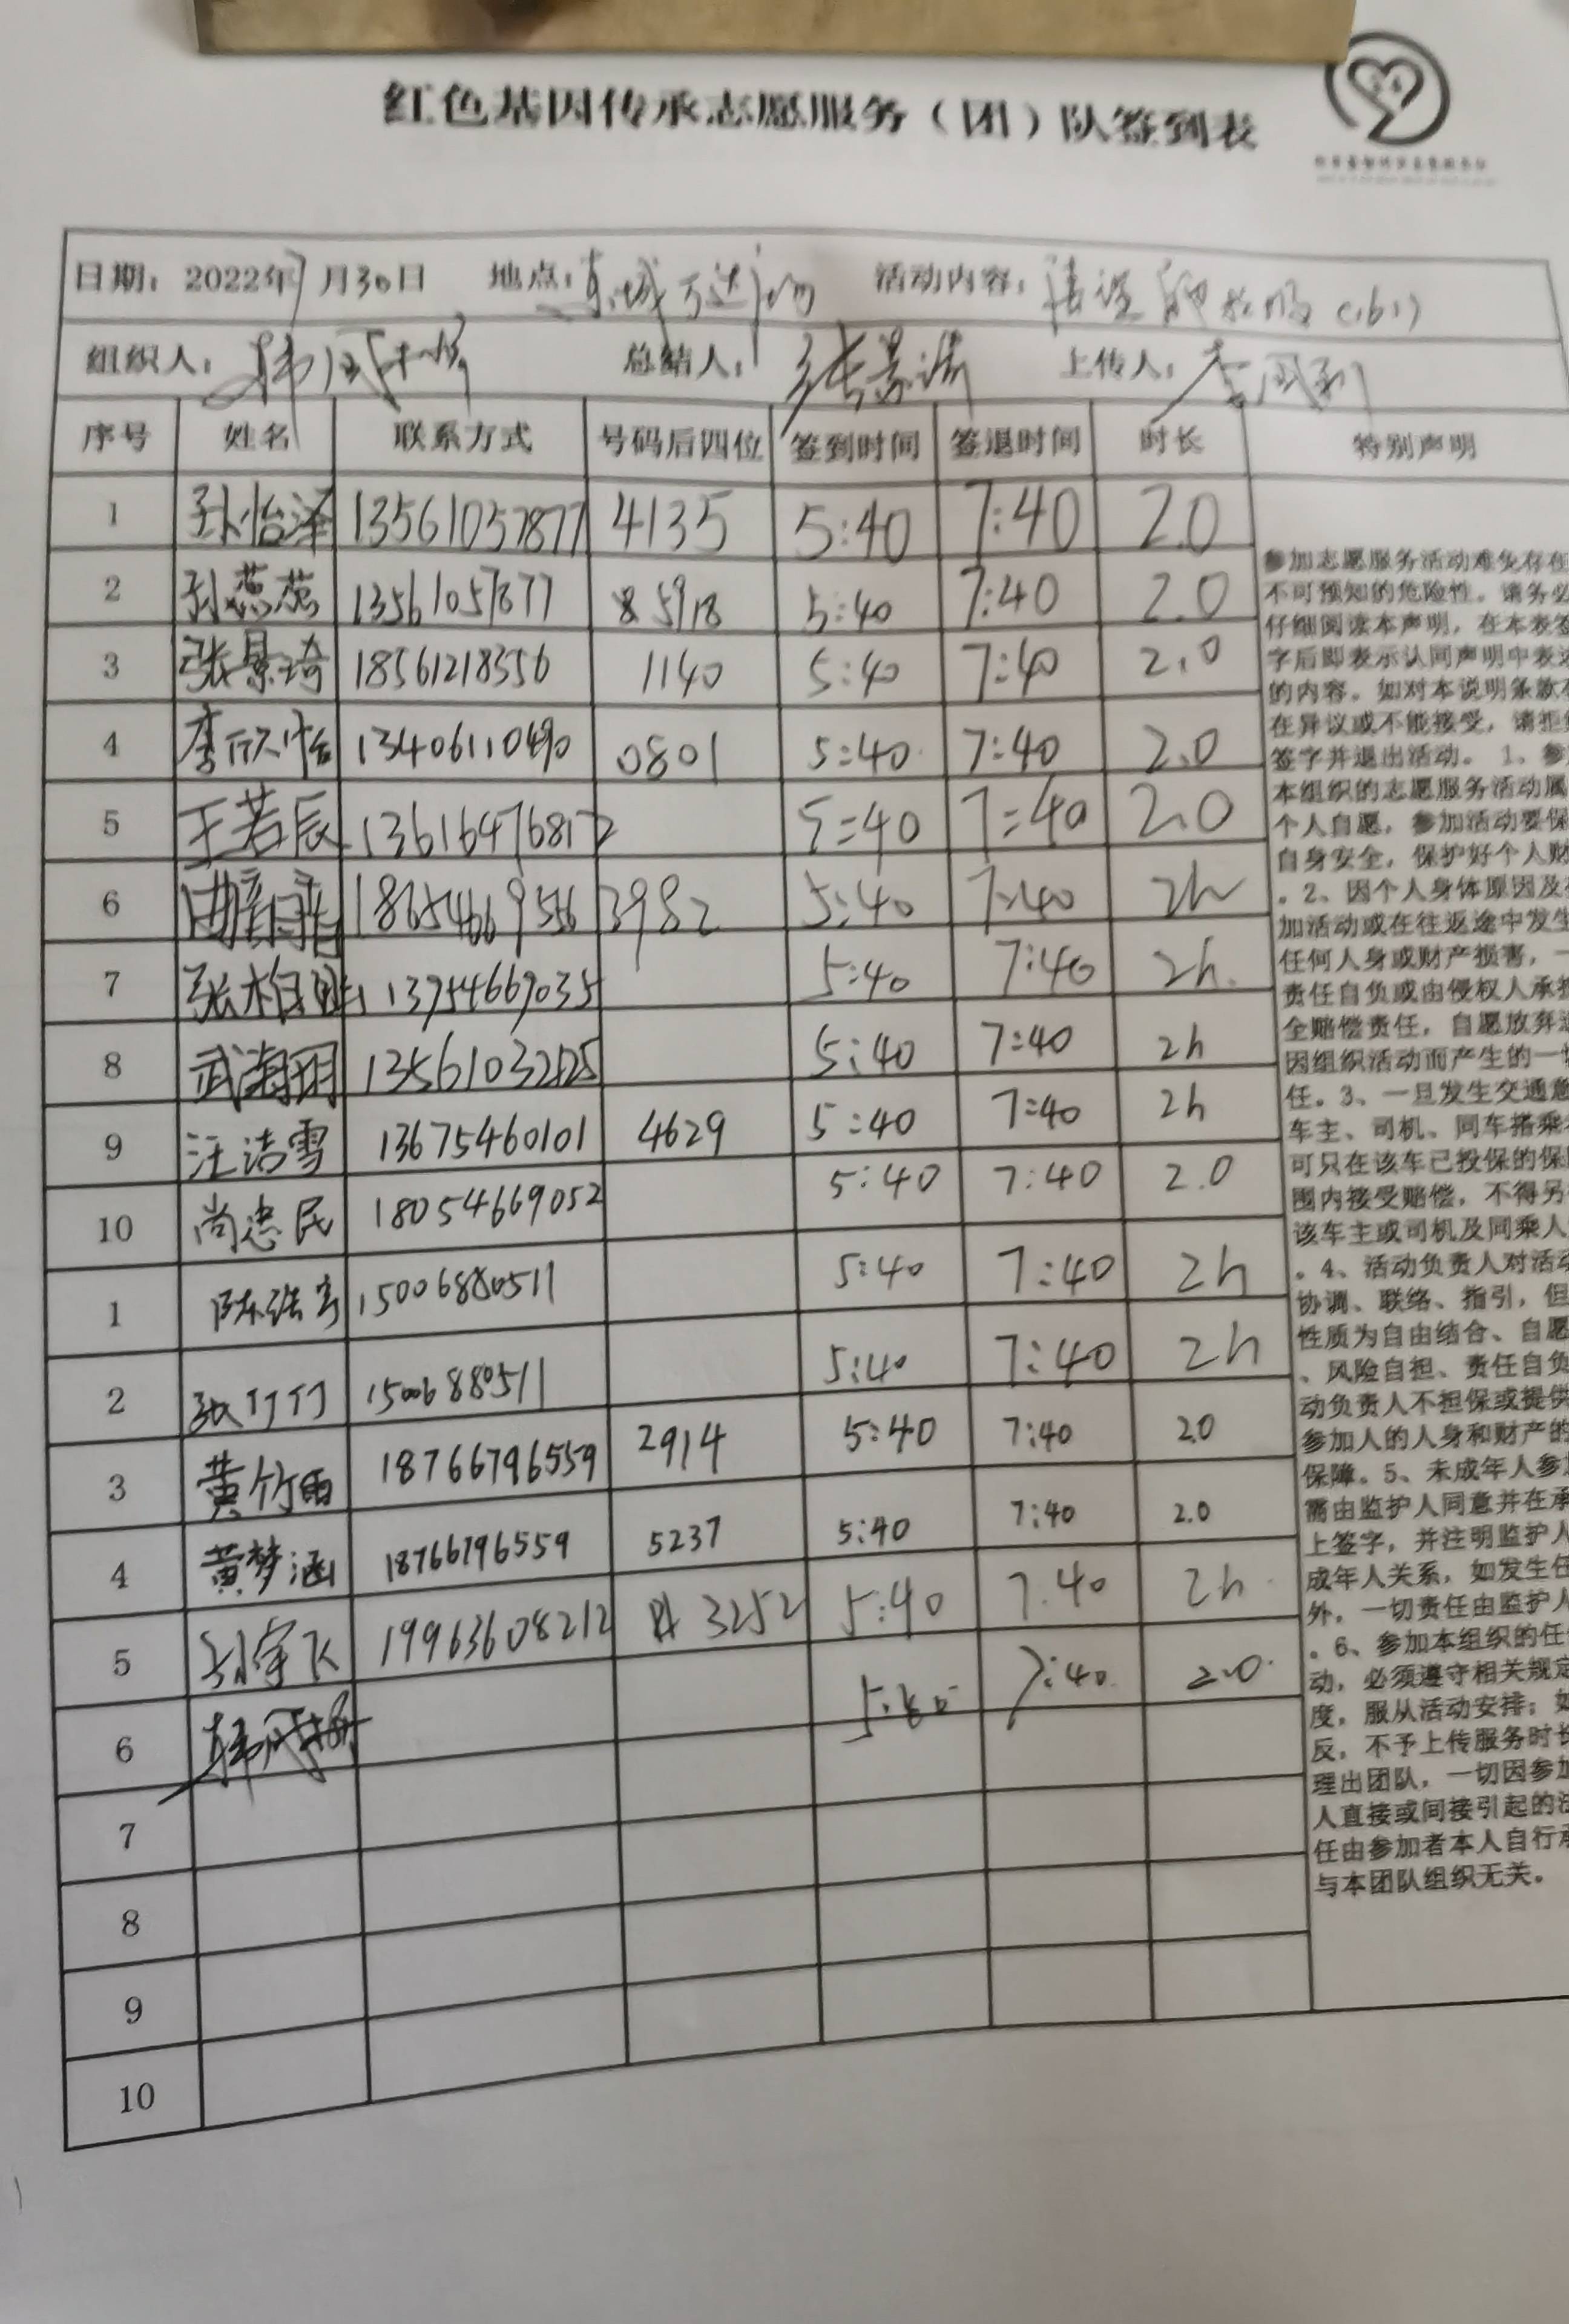 红色基因传承志愿服务（团）队签到表
日期：2022年7月30日 地点：东城万达广场 活动内容：
组织人： 总结人： 上传人：李凤利
序号 姓名 联系方式 号码后四位 签到时间 签退时间 时长 特别声明
1 孙怡泽 13561057877 4135 5:40 7:40 2.0
2 13561057877 5:40 7:40 2.0
3 张景琦 18561218356 1140 5:40 7:40 2.0
4 李欣怡 13406110490 0801 5:40 7:40 2.0
5 王若辰 13616476817 5:40 7:40 2.0
6 3982 5:40 7:40 2h
7 5:40 7:40 2h
8 5:40 7:40 2h
9 汪洁雪 13675460101 4629 5:40 7:40 2h
10 尚忠民 18054669052 5:40 7:40 2.0
1 15006880511 5:40 7:40 2h
2 15006880511 5:40 7:40 2h
3 黄竹雨 18766796559 2914 5:40 7:40 2.0
4 黄梦涵 18766796559 5237 5:40 7:40 2.0
5 刘宇飞 19963608212 3252 5:40 7:40 2h
6 7:40 2.0
7
8
9
10
参加志愿服务活动难免存在
不可预知的危险性。请务必
仔细阅读本声明，在本表签
字后即表示认同声明中表述
的内容。如对本说明条款存
在异议或不能接受，请拒绝
签字并退出活动。1、参
本组织的志愿服务活动属
个人自愿，参加活动要保
自身安全，保护好个人财
。2、因个人身体原因及
加活动或在往返途中发生
任何人身或财产损害，一
责任自负或由侵权人承担
全赔偿责任，自愿放弃追
因组织活动而产生的一切
任。3、一旦发生交通意
车主、司机、同车搭乘
可只在该车已投保的保
围内接受赔偿，不得另
该车主或司机及同乘人
。4、活动负责人对活动
协调、联络、指引，但
性质为自由结合、自愿
、风险自担、责任自负
动负责人不担保或提供
参加人的人身和财产的
保障。5、未成年人参加
需由监护人同意并在承
上签字，并注明监护人
成年人关系，如发生任
外，一切责任由监护人
。6、参加本组织的任
动，必须遵守相关规定
度，服从活动安排；如
反，不予上传服务时长
理出团队，一切因参加
人直接或间接引起的法
任由参加者本人自行承
与本团队组织无关。